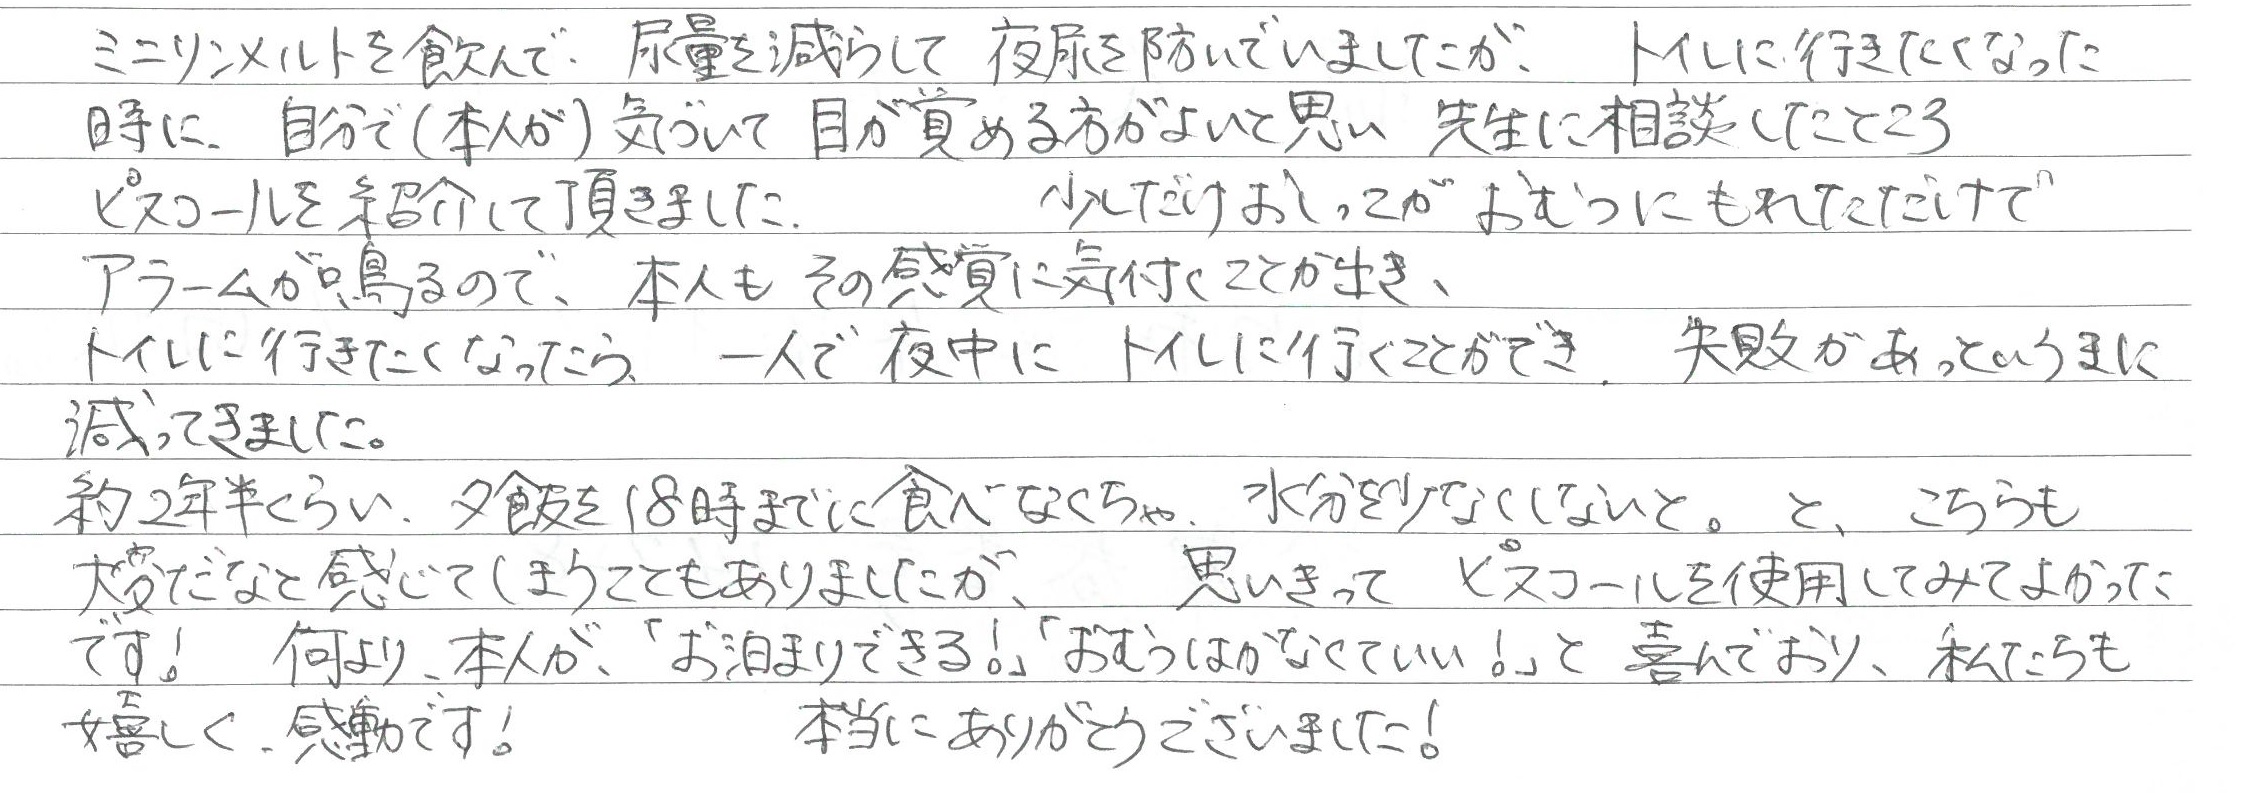 ミニリンメルトを飲んで、尿量を減らして 夜尿を防いでいましたが、 トイレに行きたくなった
時に、自分で(本人が)気づいて 目が覚める方がよいと思い 先生に相談したところ
ピスコールを紹介して頂きました。 少しだけおしっこが おむつにもれただけで
アラームが鳴るので、本人も その感覚に気付くことが出き、
トイレに行きたくなったら、一人で夜中に トイレに行くことができ、失敗があっというまに
減ってきました。
約2年半くらい、夕飯を18時までに食べなくちゃ、水分を少なくしないと。と、こちらも
大変だなと感じてしまうこともありましたが、 思いきって ピスコールを使用してみてよかった
です! 何より、本人が、「お泊まりできる!」「おむつはかなくていい!」と 喜んでおり、私たちも
嬉しく、感動です! 本当にありがとうございました!